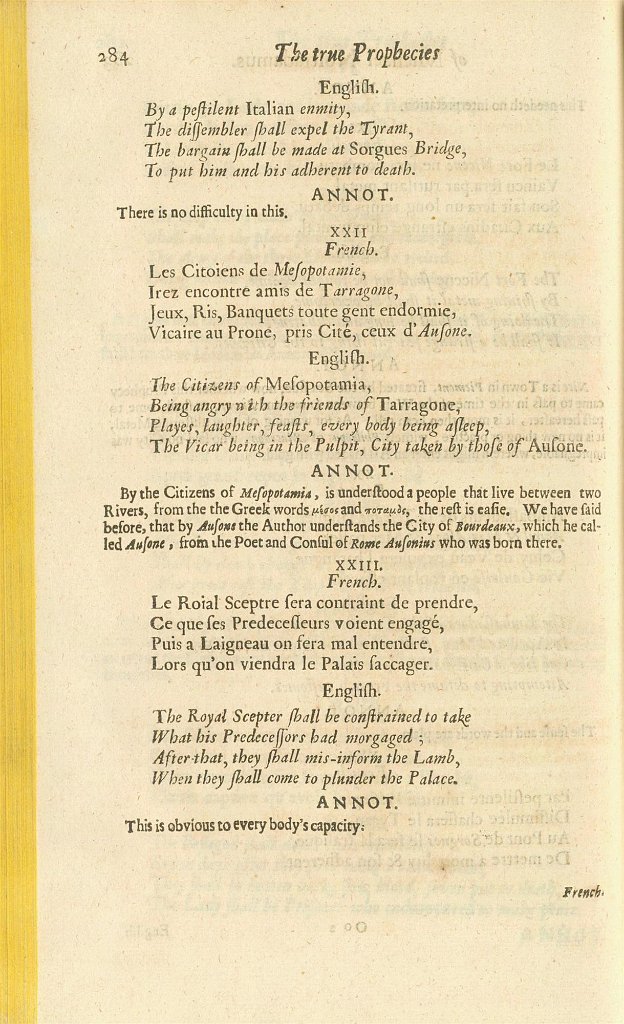 284 The true Prophecies
Engliſh.
By a peſtilent Italian enmity,
The diſſembler ſhall expel the Tyrant,
The bargain ſhall be made at Sorgues Bridge,
To put him and his adherent to death.
ANNOT.
There is no difficulty in this.
XXII
French.
Les Citoiens de Meſopotamie,
Irez encontre amis de Tarragone,
Jeux, Ris, Banquets toute gent endormie,
Vicaire au Prone, pris Cité, ceux d'Auſone.
Engliſh.
The Citizens of Meſopotamia,
Being angry with the friends of Tarragone,
Playes, laughter, feaſts, every body being aſleep,
The Vicar being in the Pulpit, City taken by thoſe of Auſone.
ANNOT.
By the Citizens of Meſopotamia, is underſtood a people that live between two
Rivers, from the the Greek words μέσος and ποταμὸς, the reſt is eaſie. We have ſaid
before, that by Auſone the Author underſtands the City of Bourdeaux, which he cal-
led Auſone, from the Poet and Conſul of Rome Auſonius who was born there.
XXIII.
French.
Le Roial Sceptre ſera contraint de prendre,
Ce que ſes Predeceſſeurs voient engagé,
Puis a Laigneau on fera mal entendre,
Lors qu'on viendra le Palais ſaccager.
Engliſh.
The Royal Scepter ſhall be conſtrained to take
What his Predeceſſors had morgaged;
After that, they ſhall mis-inform the Lamb,
When they ſhall come to plunder the Palace.
ANNOT.
This is obvious to every body's capacity.
French.